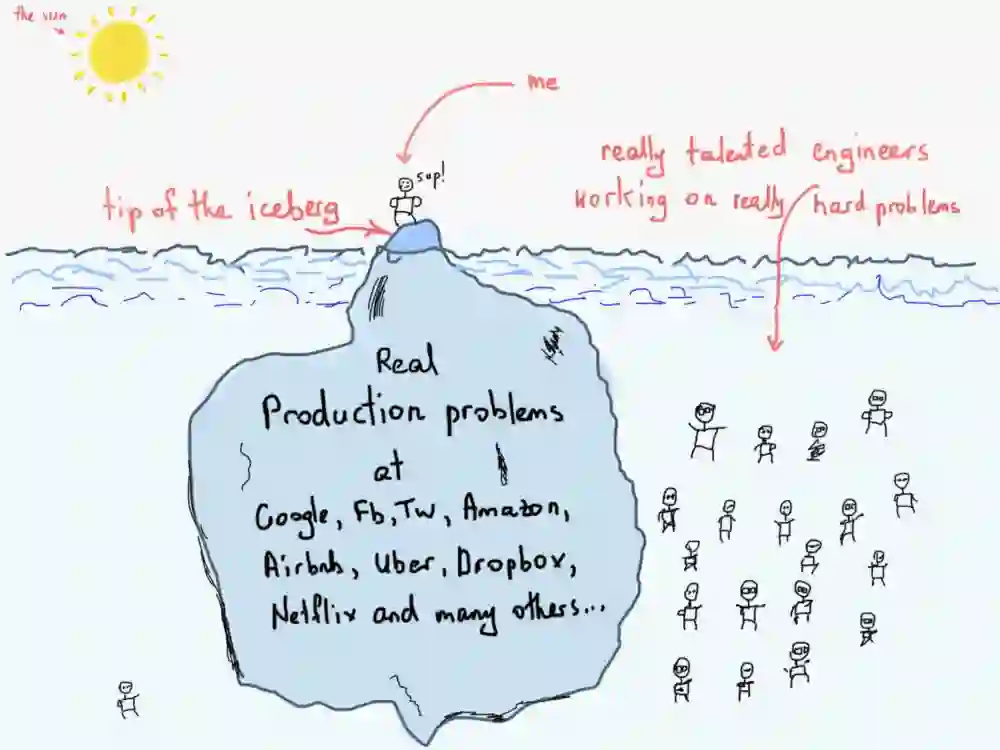 the sun
me
sup!
really talented engineers
working on really hard problems
tip of the iceberg
Real
Production problems
at
Google, Fb, Tw, Amazon,
Airbnb, Uber, Dropbox,
Netflix and many others...